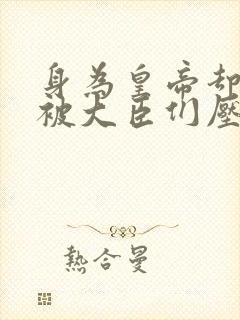 身為皇帝却
被大臣们壓
熱合曼